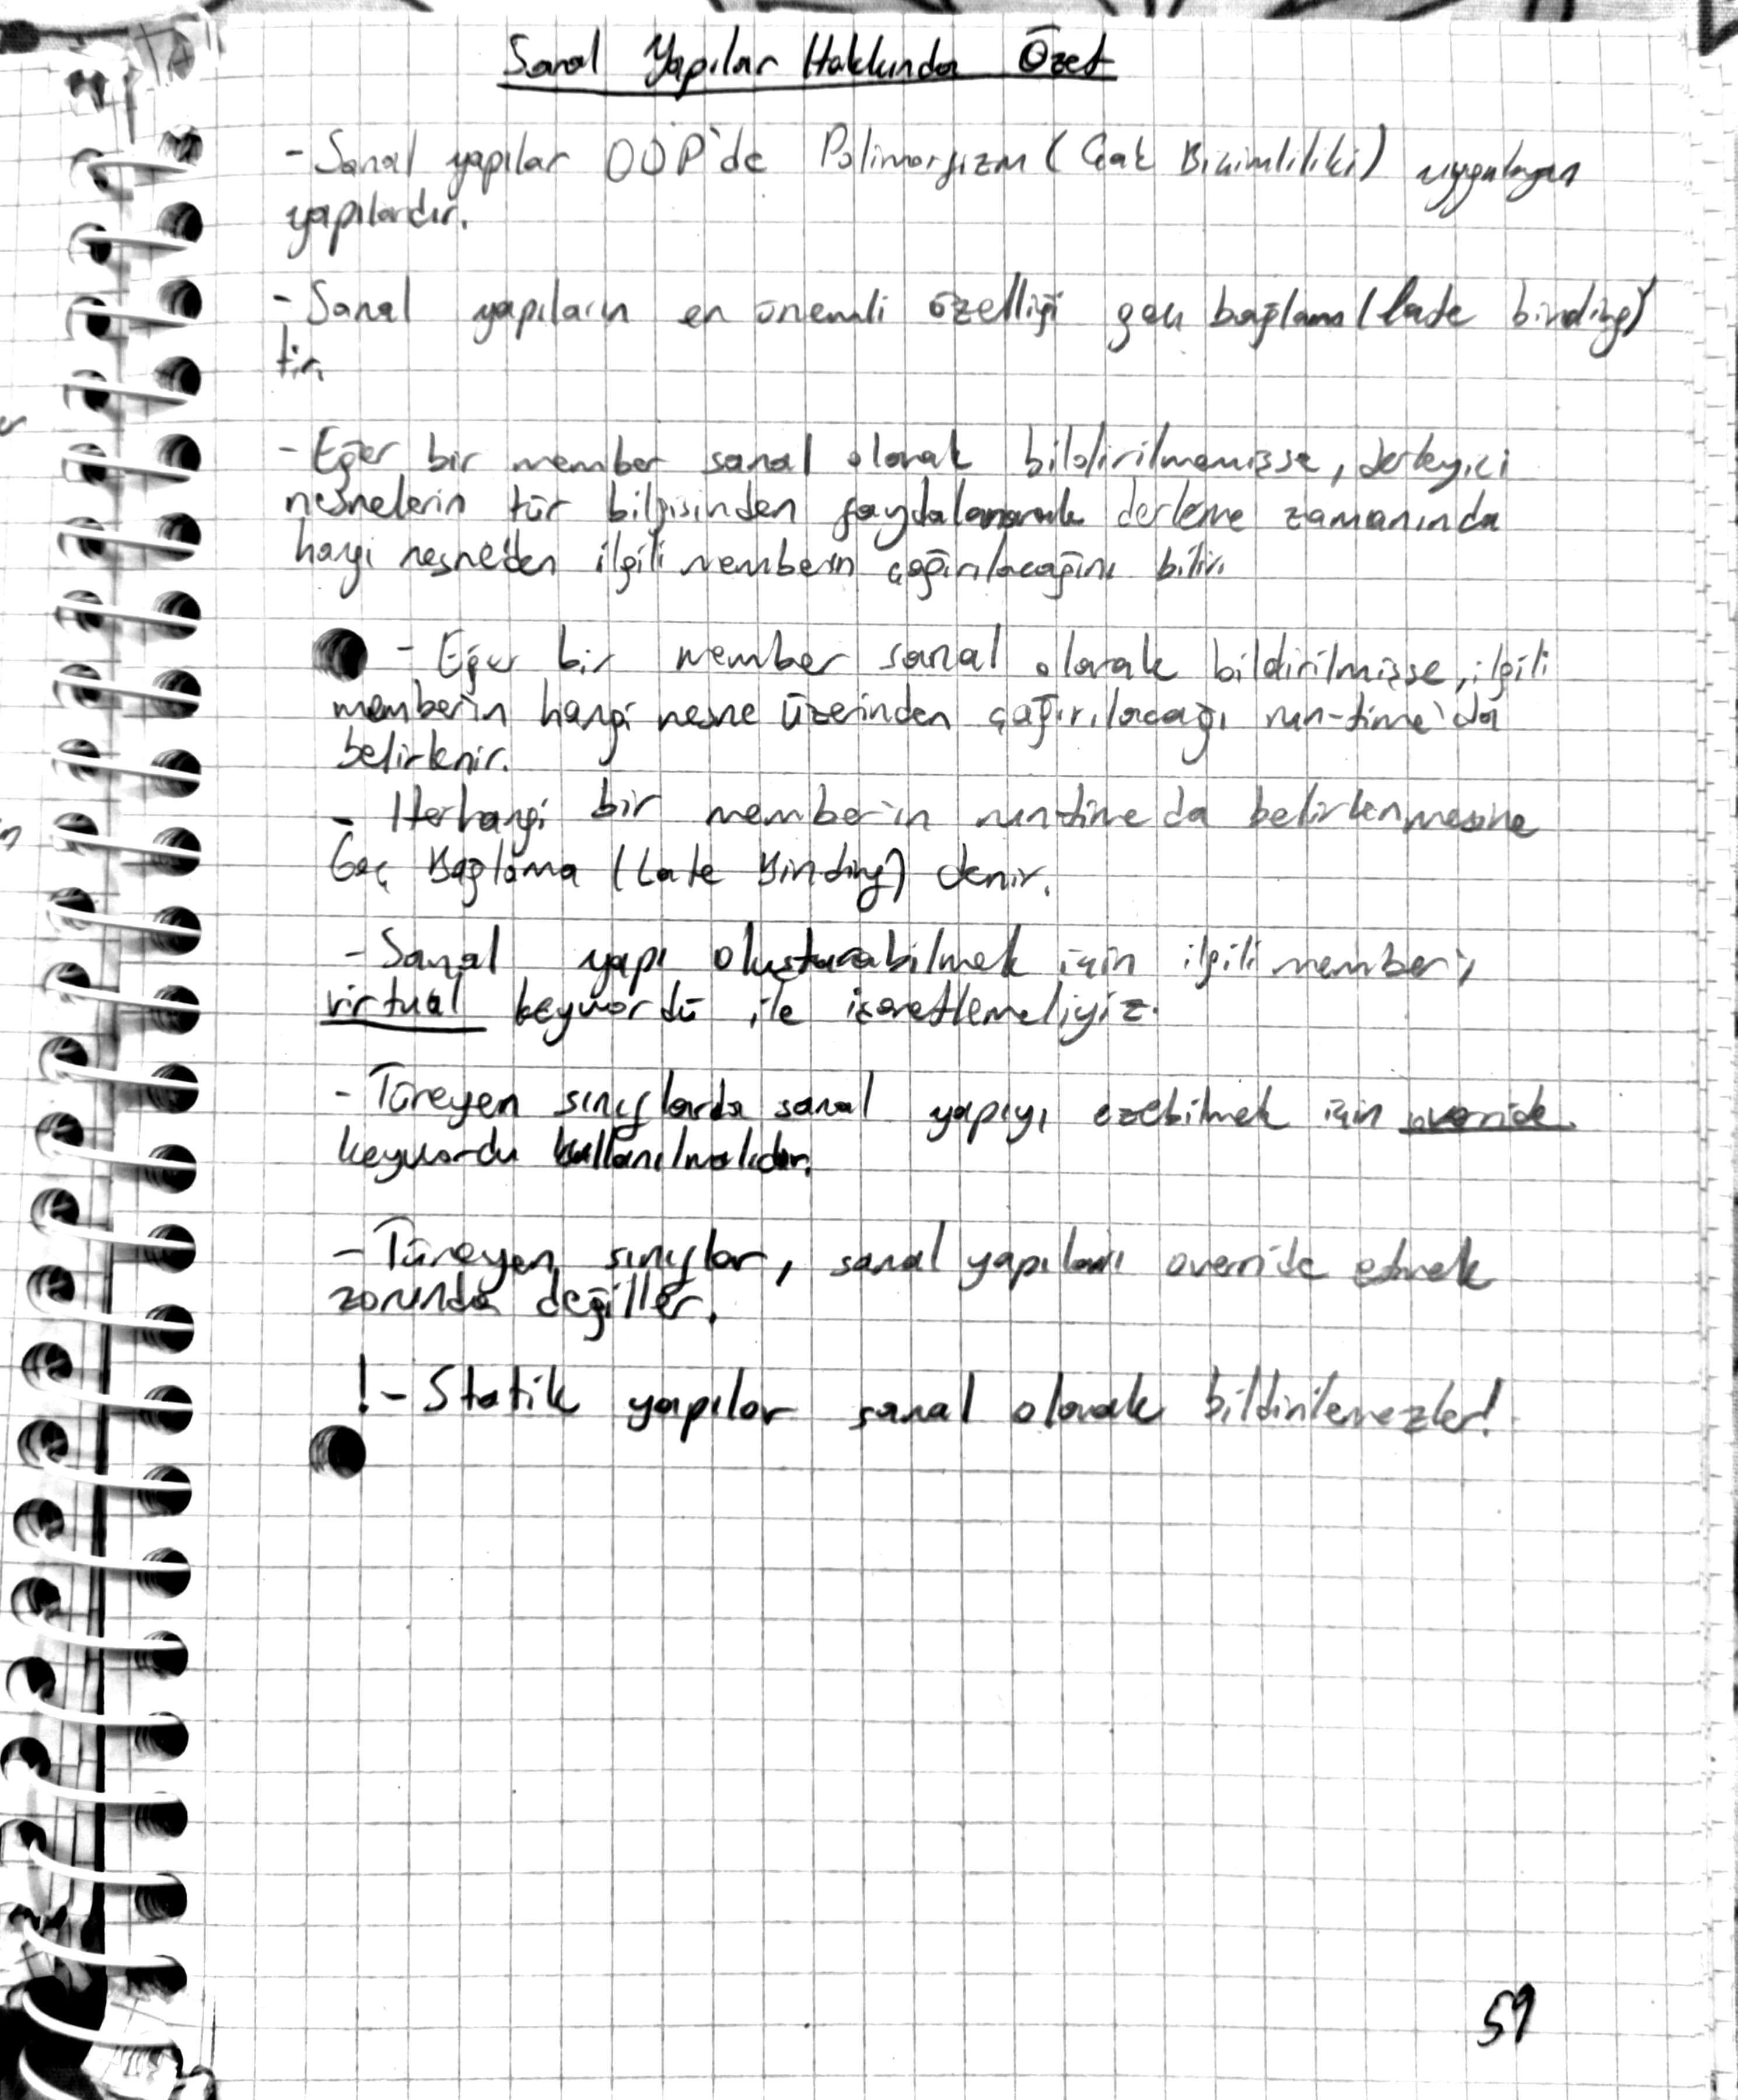 Sanal Yapılar Hakkında Özet
- Sanal yapılar OOP'de Polimorfizm (Çok Biçimliliki) uygulayan
yapılardır.
- Sanal yapıların en önemli özelliği geç bağlama (late binding)
tir.
- Eğer bir member sanal olarak bildirilmemişse, derleyici
nesnelerin tür bilgisinden faydalanarak derleme zamanında
hangi nesneden ilgili memberın çağırılacağını bilir.
- Eğer bir member sanal olarak bildirilmişse, ilgili
member'ın hangi nesne üzerinden çağırılacağı run-time'da
belirlenir.
- Herhangi bir member'ın runtime da belirlenmesine
Geç Bağlama (Late Binding) denir.
- Sanal yapı oluşturabilmek için ilgili member'ı
virtual keywordü ile işaretlemeliyiz.
- Türeyen sınıflarda sanal yapıyı ezebilmek için override
keywordu kullanılmalıdır.
- Türeyen sınıflar, sanal yapıları override etmek
zorunda değiller.
!- Statik yapılar sanal olarak bildirilemezler!
59